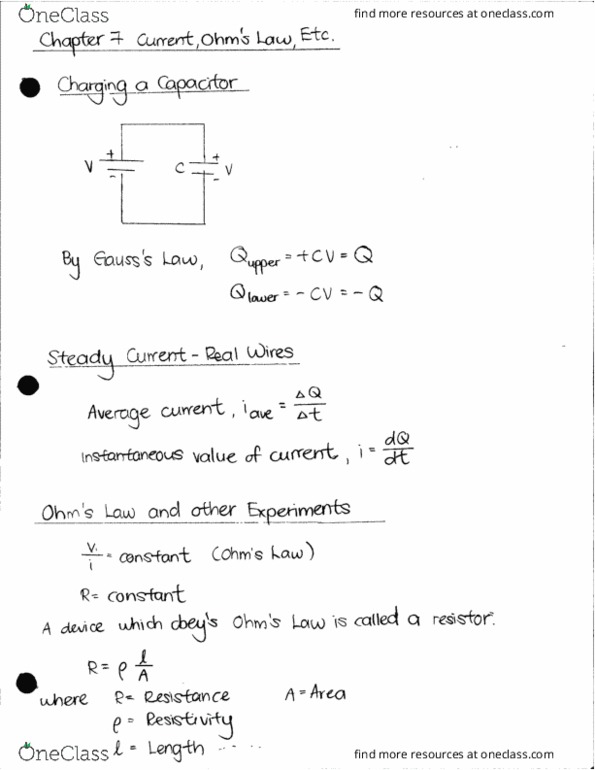 OneClass find more resources at oneclass.com
Chapter 7 Current, Ohm's Law, Etc.
Charging a Capacitor
V + - C + - V
By Gauss's Law, Qupper = +CV = Q
Qlower = - CV = - Q
Steady Current - Real Wires
Average current, iave = ΔQ/Δt
Instantaneous value of current, i = dQ/dt
Ohm's Law and other Experiments
V/i = constant (Ohm's Law)
R = constant
A device which obey's Ohm's Law is called a resistor.
R = ρ l/A
where R = Resistance A = Area
ρ = Resistivity
l = Length
OneClass find more resources at oneclass.com